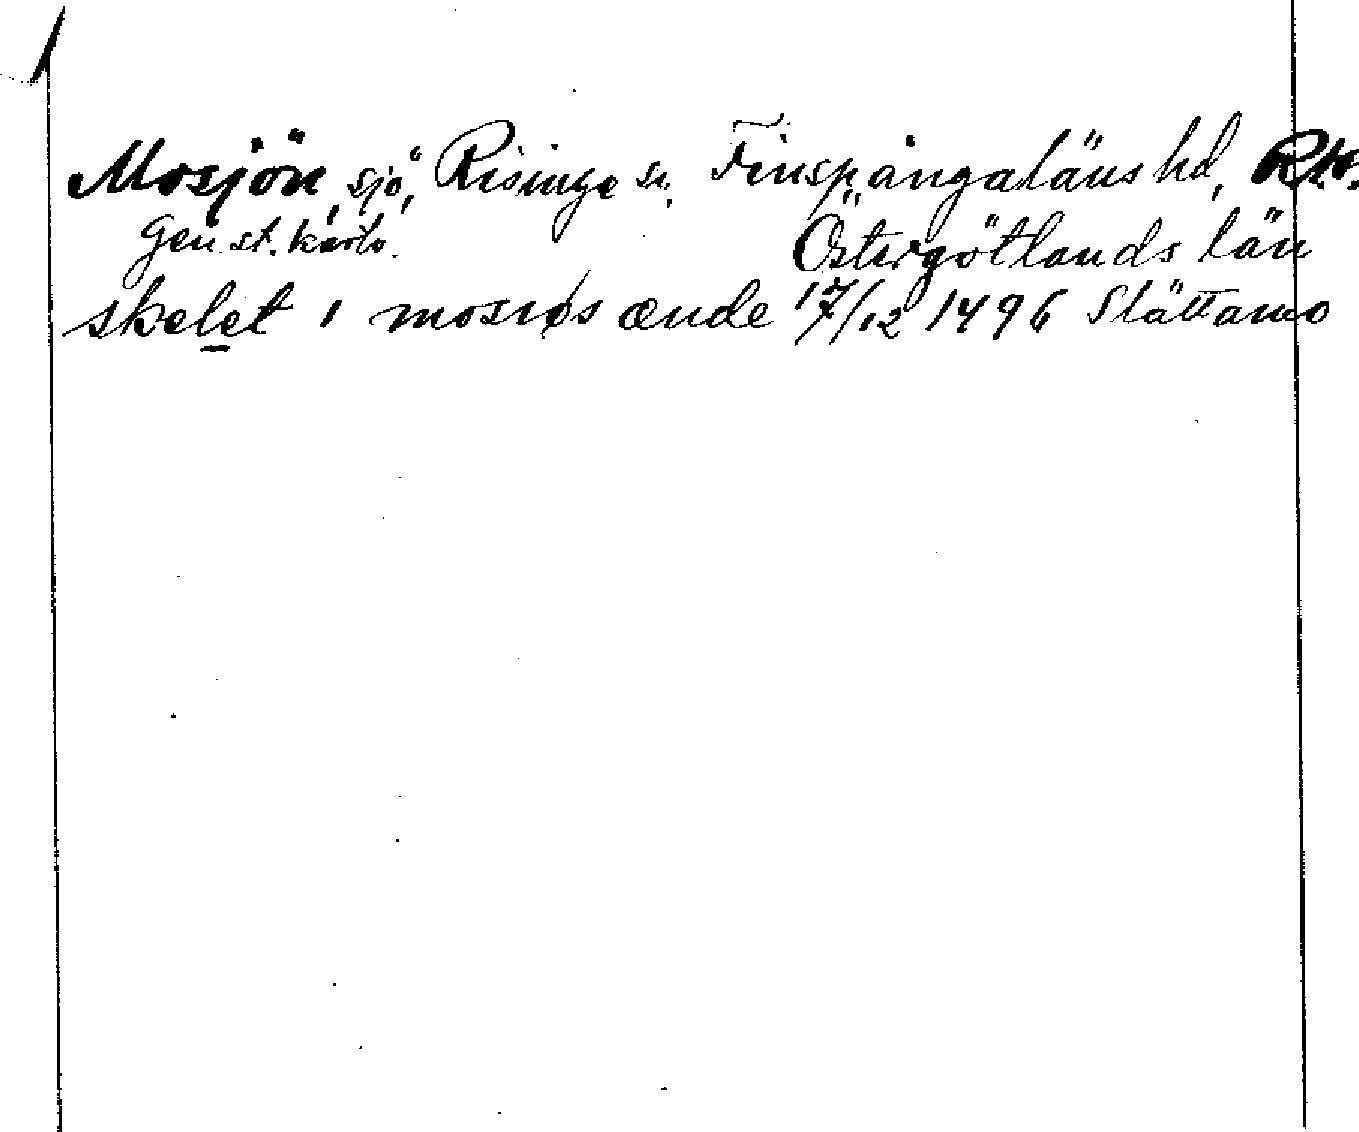 Mosjön, sjö, Risinge sn. Finspångaläns hd,
Gen.st.karta. Östergötlands län
skelet i mosiøs ænde 17/12 1496 Slättamo